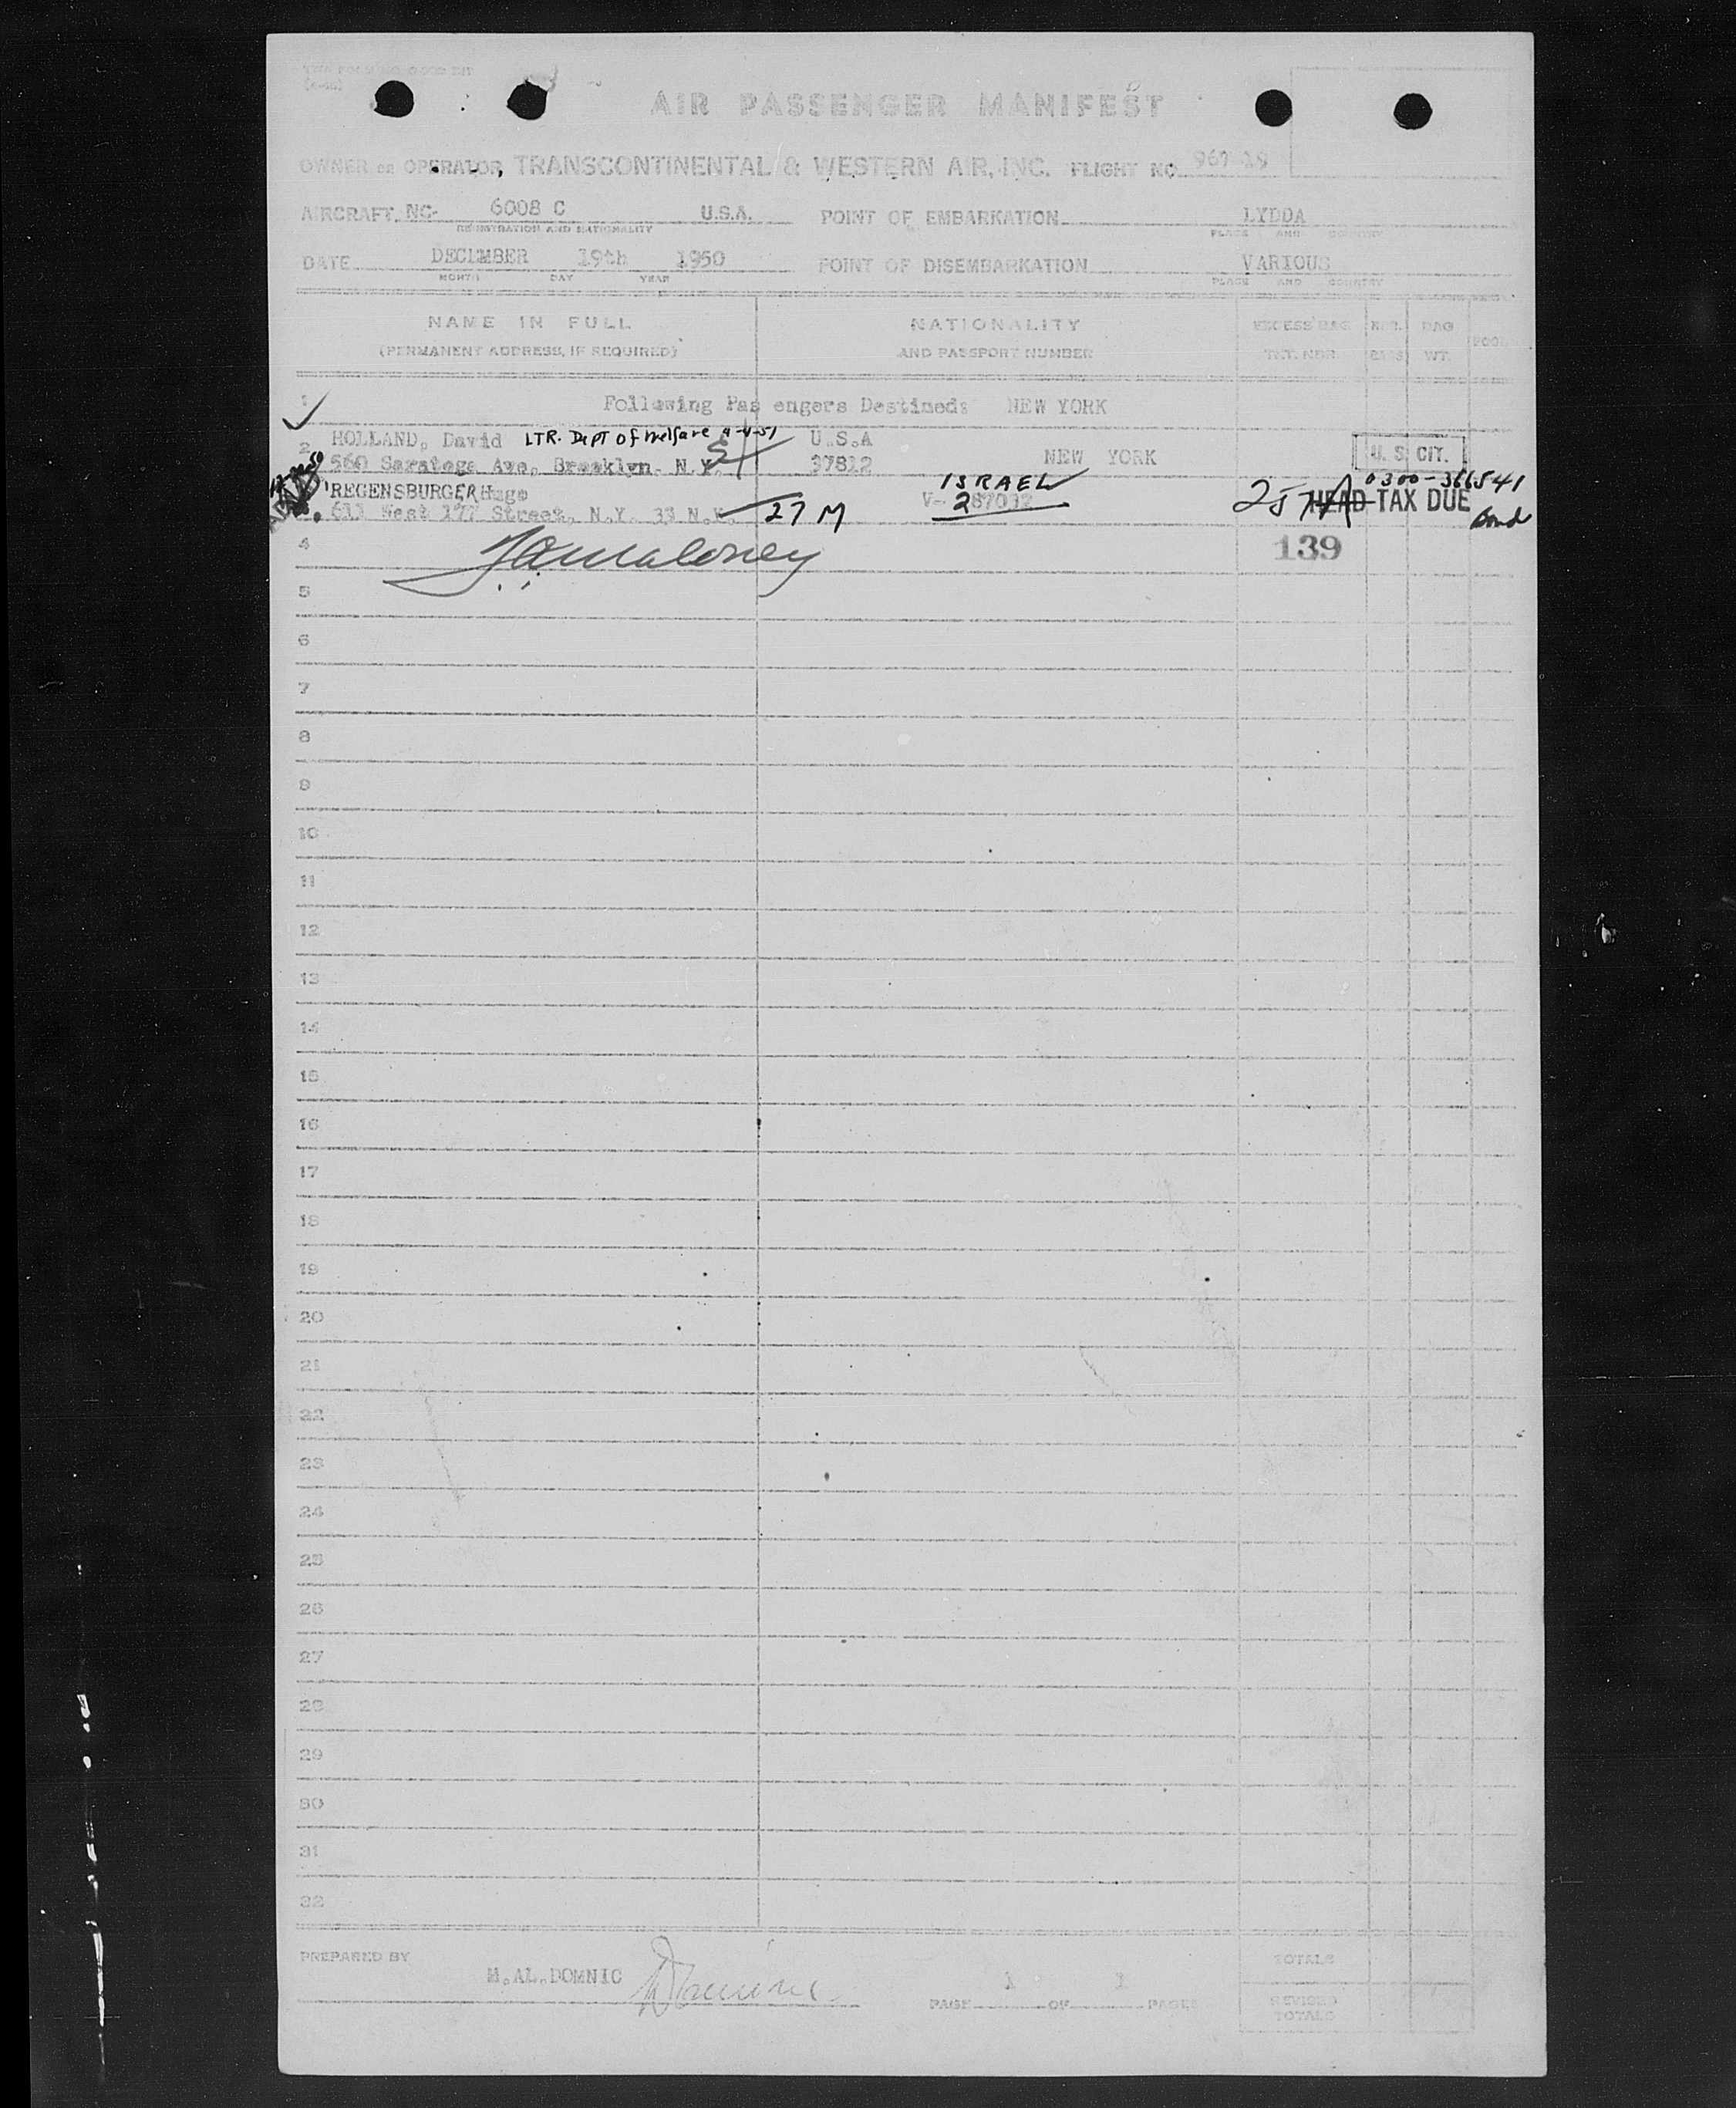 AIR PASSENGER MANIFEST
OWNER OR OPERATOR, TRANSCONTINENTAL & WESTERN AIR, INC. FLIGHT NO. 967-19
AIRCRAFT NC- 6008 C U.S.A. POINT OF EMBARKATION LYDDA
REGISTRATION AND NATIONALITY PLACE AND COUNTRY
DATE DECEMBER 19th 1950 POINT OF DISEMBARKATION VARIOUS
MONTH DAY YEAR PLACE AND COUNTRY
NAME IN FULL NATIONALITY EXCESS BAG BAG
(PERMANENT ADDRESS, IF REQUIRED) AND PASSPORT NUMBER TKT. NBR. WT.
1 Following Pas engers Destined: NEW YORK
2 HOLLAND, David LTR. DEPT of Welfare U.S.A
560 Saratoga Ave. Brooklyn. N.Y. 37812 NEW YORK U.S. CIT.
REGENSBURGER, Hugo ISRAEL 0300-366541
613 West 177 Street, N.Y. 33 N.Y. 27 M V-287032 HEAD TAX DUE Bond
4 139
5
6
7
8
9
10
11
12
13
14
15
16
17
18
19
20
21
22
23
24
25
26
27
28
29
30
31
32
PREPARED BY M.AL.DOMNIC PAGE 1 OF 1 PAGES
TOTALS
REVISED
TOTALS